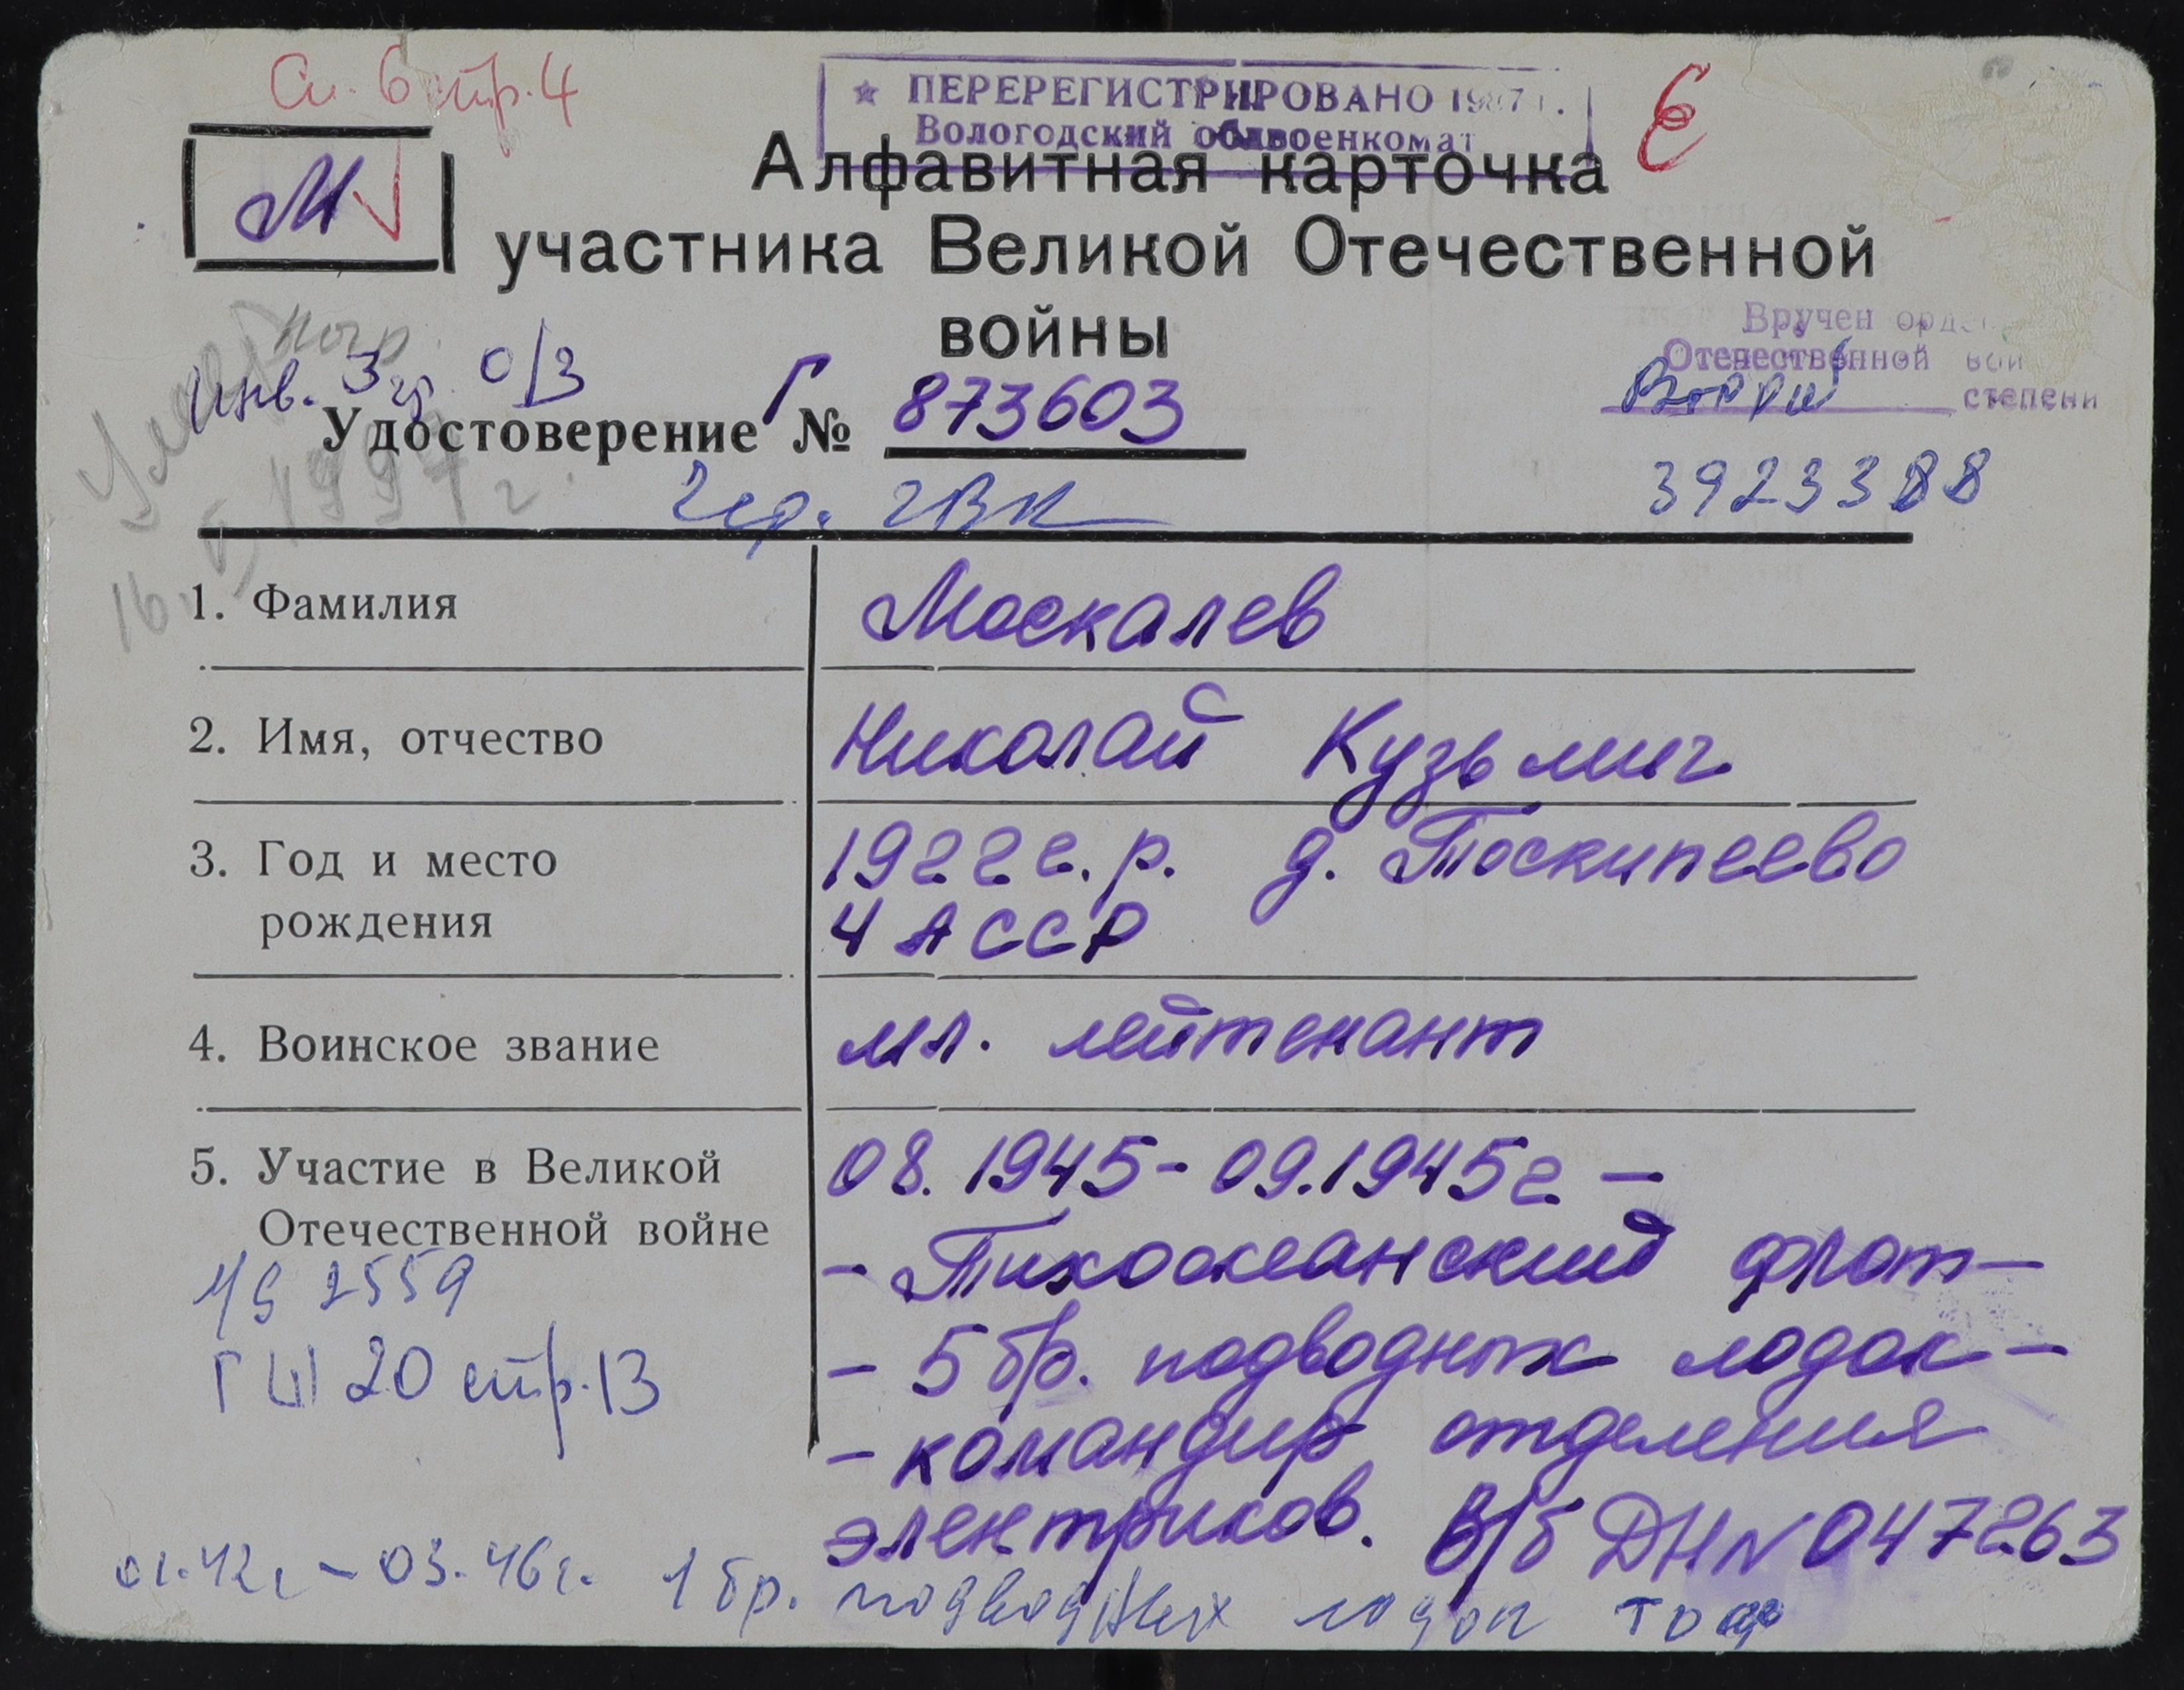 Сп. 6 стр. 4
★ ПЕРЕРЕГИСТРИРОВАНО 1987 г.
Вологодский облвоенкомат
Є
М
Алфавитная карточка
участника Великой Отечественной
войны
Инв. 3 гр. о/з
Удостоверение Г № 873603
Чер. ГВК
Вручен орде
Отечественной вой
второй степени
3923388
16.V 1997 г.
1. Фамилия
Москалев
2. Имя, отчество
Николай Кузьмич
3. Год и место
рождения
1922 г.р. д. Тоскипеево
ЧАССР
4. Воинское звание
мл. лейтенант
5. Участие в Великой
Отечественной войне
08.1945 - 09.1945 г. -
- Тихоокеанский флот -
- 5 бр. подводных лодок -
- командир отделения
электриков. В/б ДН N 047263
1/S 2559
ГШ 20 стр. 13
01.42 г. - 03.46 г. 1 бр. подводных лодок ТОФ